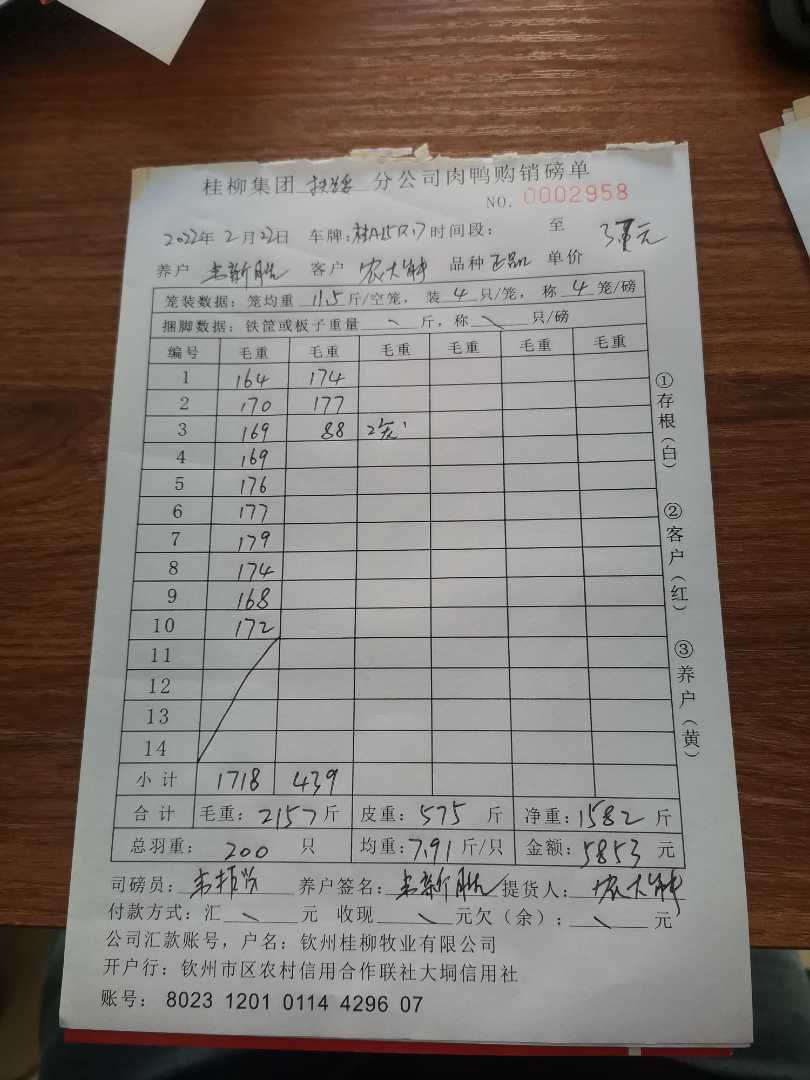 桂柳集团 扶绥 分公司肉鸭购销磅单
NO. 0002958
2022年 2月22日 车牌: 时间段: 至
养户 客户 农大 品种 单价 元
笼装数据: 笼均重 11.5 斤/空笼, 装 4 只/笼, 称 4 笼/磅
捆脚数据: 铁筐或板子重量 \ 斤, 称 \ 只/磅
编号 毛重 毛重 毛重 毛重 毛重 毛重
1 164 174
2 170 177
3 169 88 2笼
4 169
5 176
6 177
7 179
8 174
9 168
10 172
11
12
13
14
小计 1718 439
合计 毛重: 2157 斤 皮重: 575 斤 净重: 1582 斤
总羽重: 200 只 均重: 7.91 斤/只 金额: 5853 元
司磅员: 养户签名: 提货人: 农大
付款方式: 汇 \ 元 收现 \ 元欠(余): \ 元
公司汇款账号, 户名: 钦州桂柳牧业有限公司
开户行: 钦州市区农村信用合作联社大垌信用社
账号: 8023 1201 0114 4296 07
①存根(白) ②客户(红) ③养户(黄)